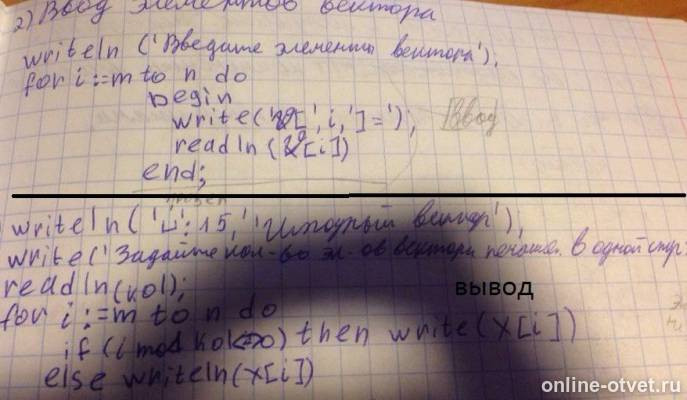 2) Ввод элементов вектора
writeln ('Введите элементы вектора');
for i:=m to n do
begin
write('[',i,']='); [Ввод]
readln ([i])
end;
writeln(' ':15, 'Исходный вектор');
write('Задайте кол-во эл-ов вектора в одной стр
readln(kol);
вывод
for i:=m to n do
if (i mod kol<>0) then write(X[i])
else writeln(X[i])
online-otvet.ru